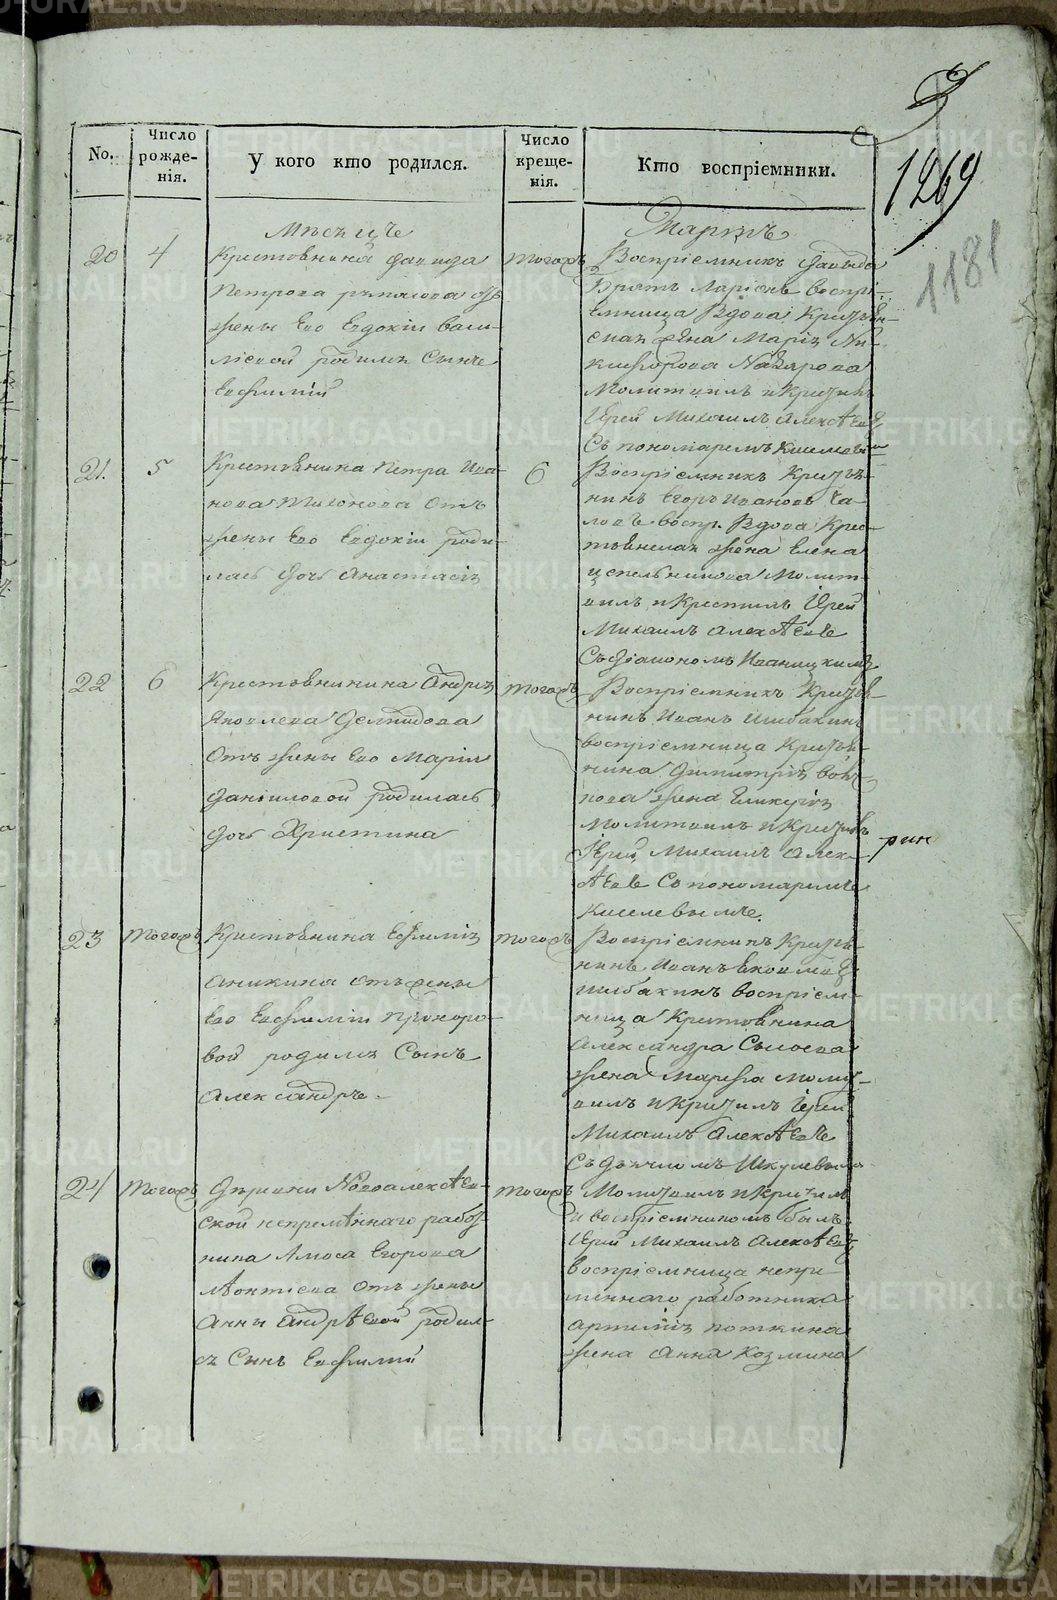 METRIKI.GASO-URAL.RU
1269
1181
No.
Число рожде-нія.
У кого кто родился.
Число креще-нія.
Кто воспріемники.
Мѣсяцъ
Мартъ
20
4
Крестьянина Давида
Петрова
жены Его Евдокіи Васи-
лiевой родился Сынъ
Евфимій
тогожъ
Воспріемникъ Давыда
Братъ Ларіонъ воспрі-
емница Вдова Крестьян-
ская жена Марія Ни-
кифорова Назарова
Молитвилъ и Крестилъ
Іерей Михаилъ Алексѣевъ
Съ пономаремъ Киселевы
21.
5
Крестьянина Петра Ива-
нова Тихонова Отъ
жены Его Евдокіи роди-
лась дочь Анастасія
6
Воспріемникъ Крестья-
нинъ Егоръ Ивановъ
воспр. Вдова Крес-
тьянская жена Елена
Молит-
вилъ и Крестилъ Іерей
Михаилъ Алексѣевъ
Съ Діакономъ Иваницкимъ
22
6
Крестьянина Андрея
Яковлева Демидова
Отъ жены Его Маріи
Даниловой родилась
дочь Христина
тогожъ
Воспріемникъ Крестья-
нинъ Иванъ Шибакинъ
воспріемница Крестья-
нина Димитрія
жена Гликерія
Молитвилъ и Крестилъ
Іерей Михаилъ Алек-
сѣевъ Съ пономаремъ
Киселевымъ.
23
тогожъ
Крестьянина Ефимія
Аникина отъ жены
Его Евфиміи Прохоро-
вой родился Сынъ
Александръ.
тогожъ
Воспріемникъ Крестья-
нинъ Иванъ
Шибакинъ воспріем-
ница Крестьянина
Александра Сысоева
жена Марфа Молит-
вилъ и Крестилъ Іерей
Михаилъ Алексѣевъ
Съ дьячкомъ
24
тогожъ
Деревни Новоалексѣев-
ской непремѣннаго работ-
ника Амоса Егорова
Леонтіева Отъ жены
Анны Андрѣевой родил-
ся Сынъ Евфимій
тогожъ
Молитвилъ и Крестилъ
и воспріемникомъ былъ
Іерей Михаилъ Алексѣевъ
воспріемница непре-
мѣннаго работника
Артемія Поткина
жена Анна Козмина